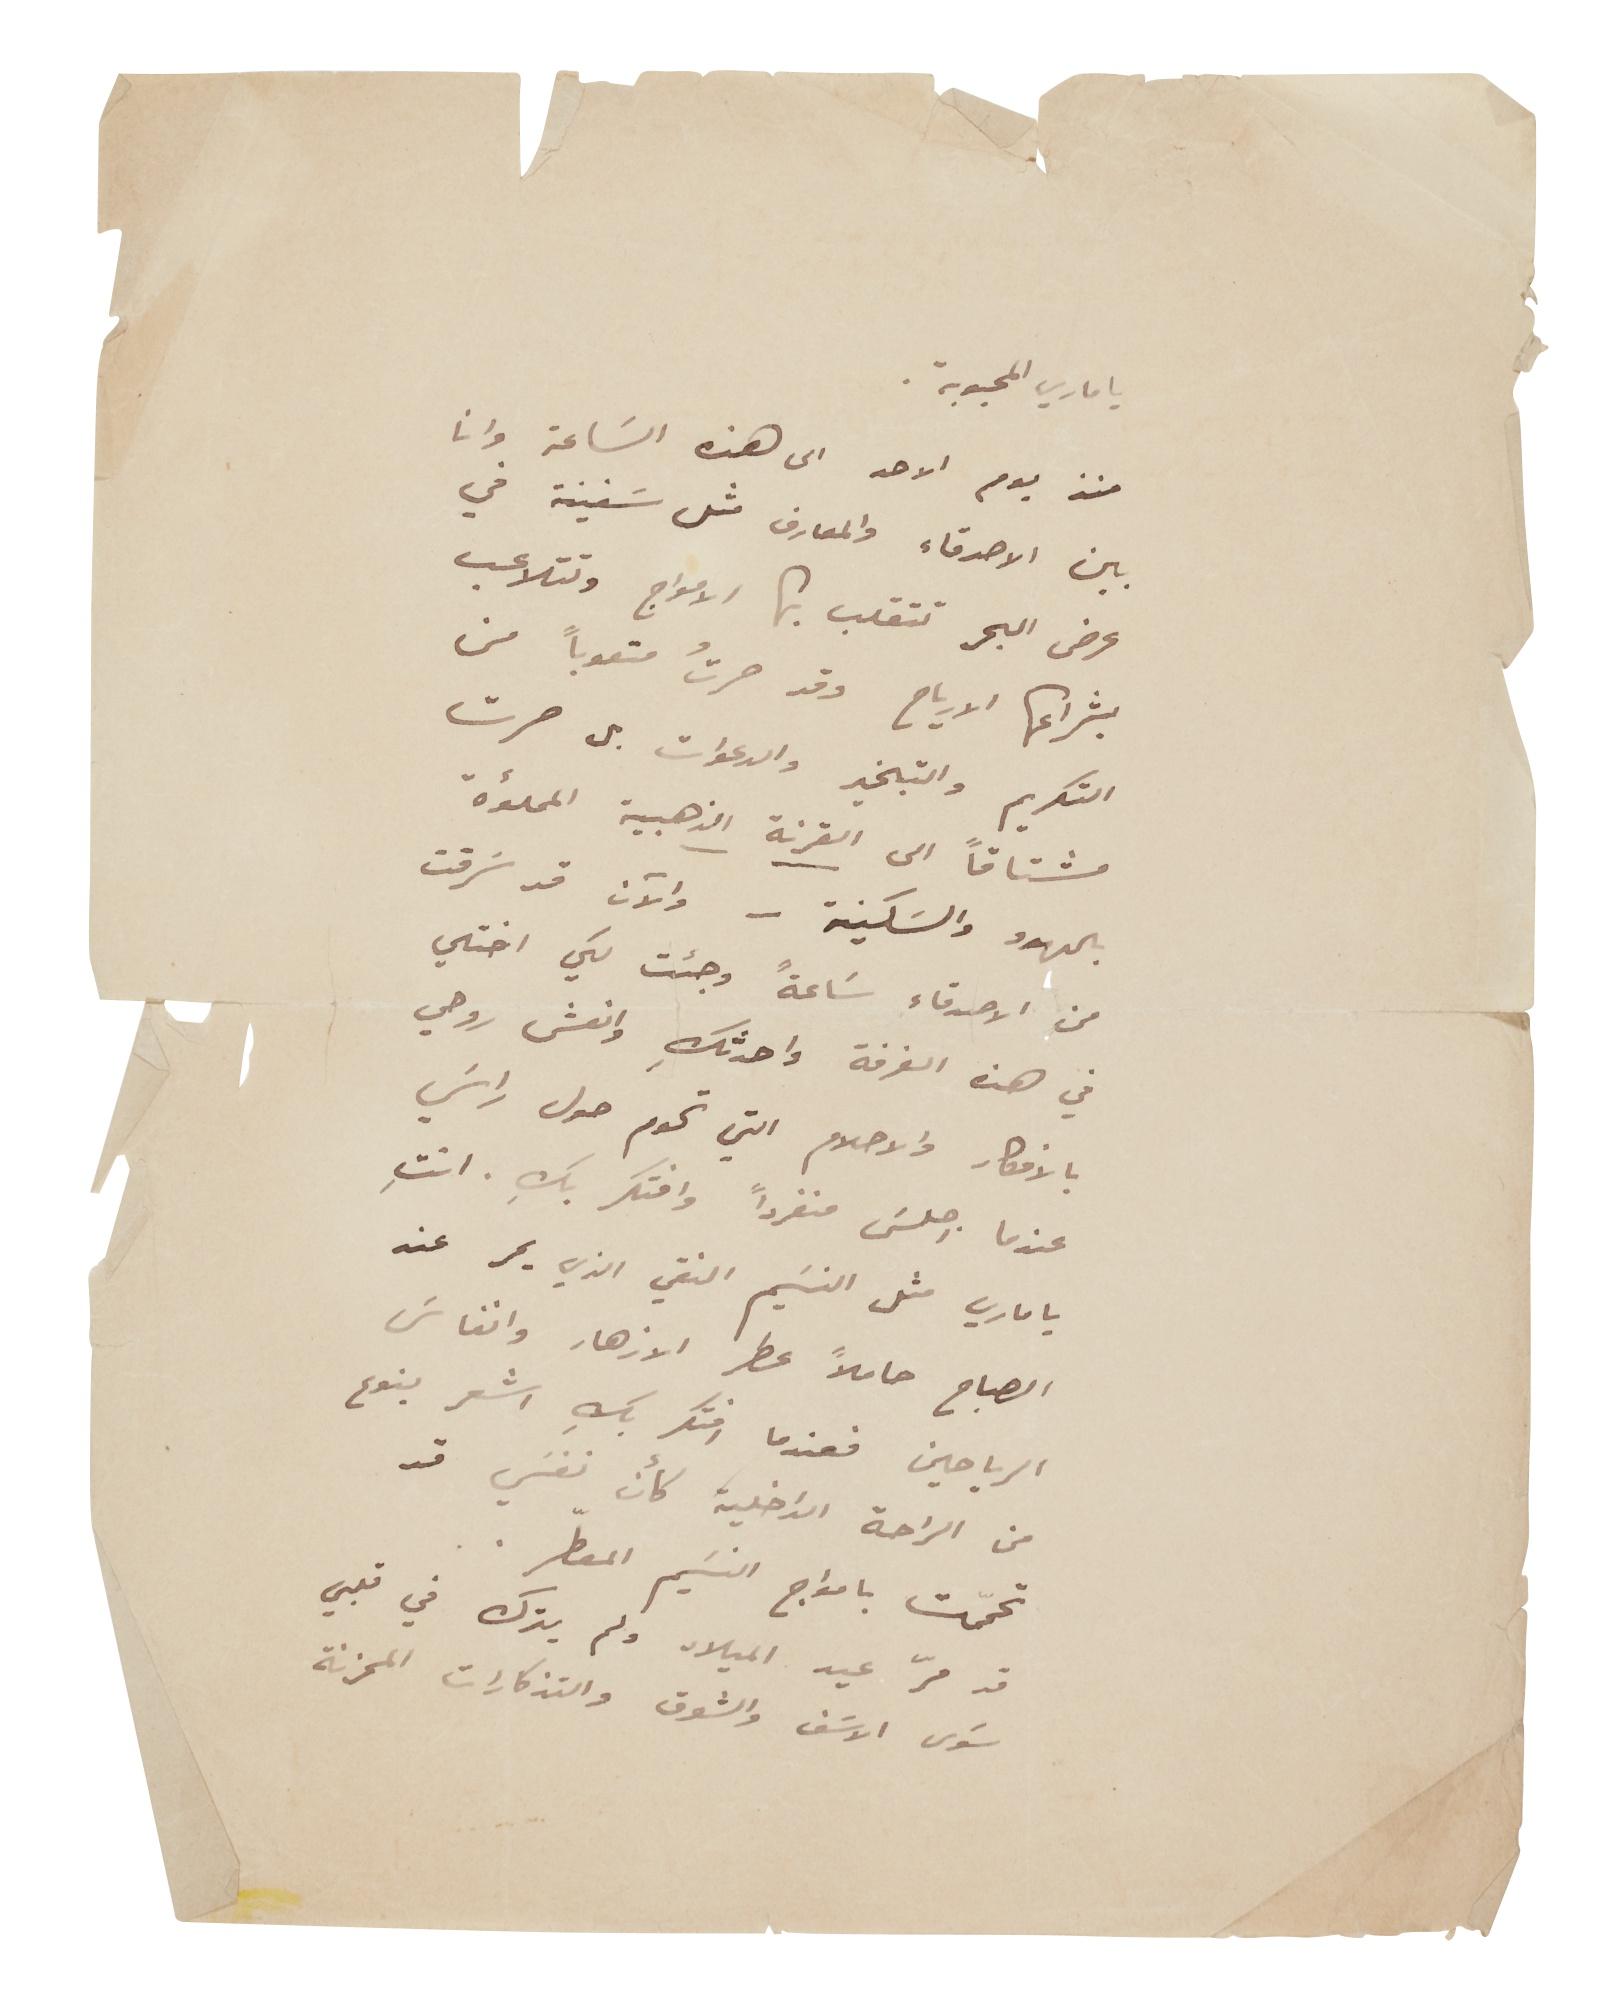 يا ماري المحبوبة .
منذ يوم الاحد الى هذه السَاعة وانا
بين الاصدقاء والمعارف مثل سَفينة في
عرض البحر تتقلب بها الامواج وتتلاعب
بشراعها الارياح وقد صرتُ متعوباً من
التكريم والتبخير والدعوات بل صرت
مشتاقاً الى القرنة الذهبية المملؤة
بالهدو والسَكينة – والآن قد سَرقت
من الاصدقاء سَاعةً وجئت لكي اختلي
في هذه الغرفة واحدثكِ وانعش روحي
بالافكار والاحلام التي تحوم حول راسَي
عندما اجلسَ منفرداً وافتكر بكِ . انتِ
يا ماري مثل النسَيم النقي الذي يمر عند
الصباح حاملاً عطر الازهار وانفاسَ
الرياحين فعندما افتكر بكِ اشعر بنوع
من الراحة الداخلية كأن نفسَي قد
تحمّمت بامواج النسَيم المعطّر . .
قد مرّ عيد الميلاد ولم يترك في قلبي
سَوى الاسَف والشوق والتذكارات المحزنة